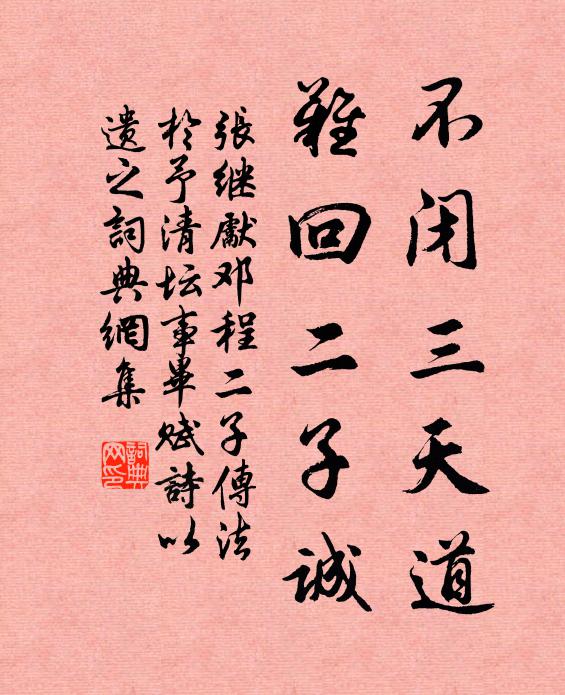 不闭三天道
難回二子誠
張继獻邓程二子傳法
於予清坛事畢赋詩以
遗之詞典網集
詞典网印